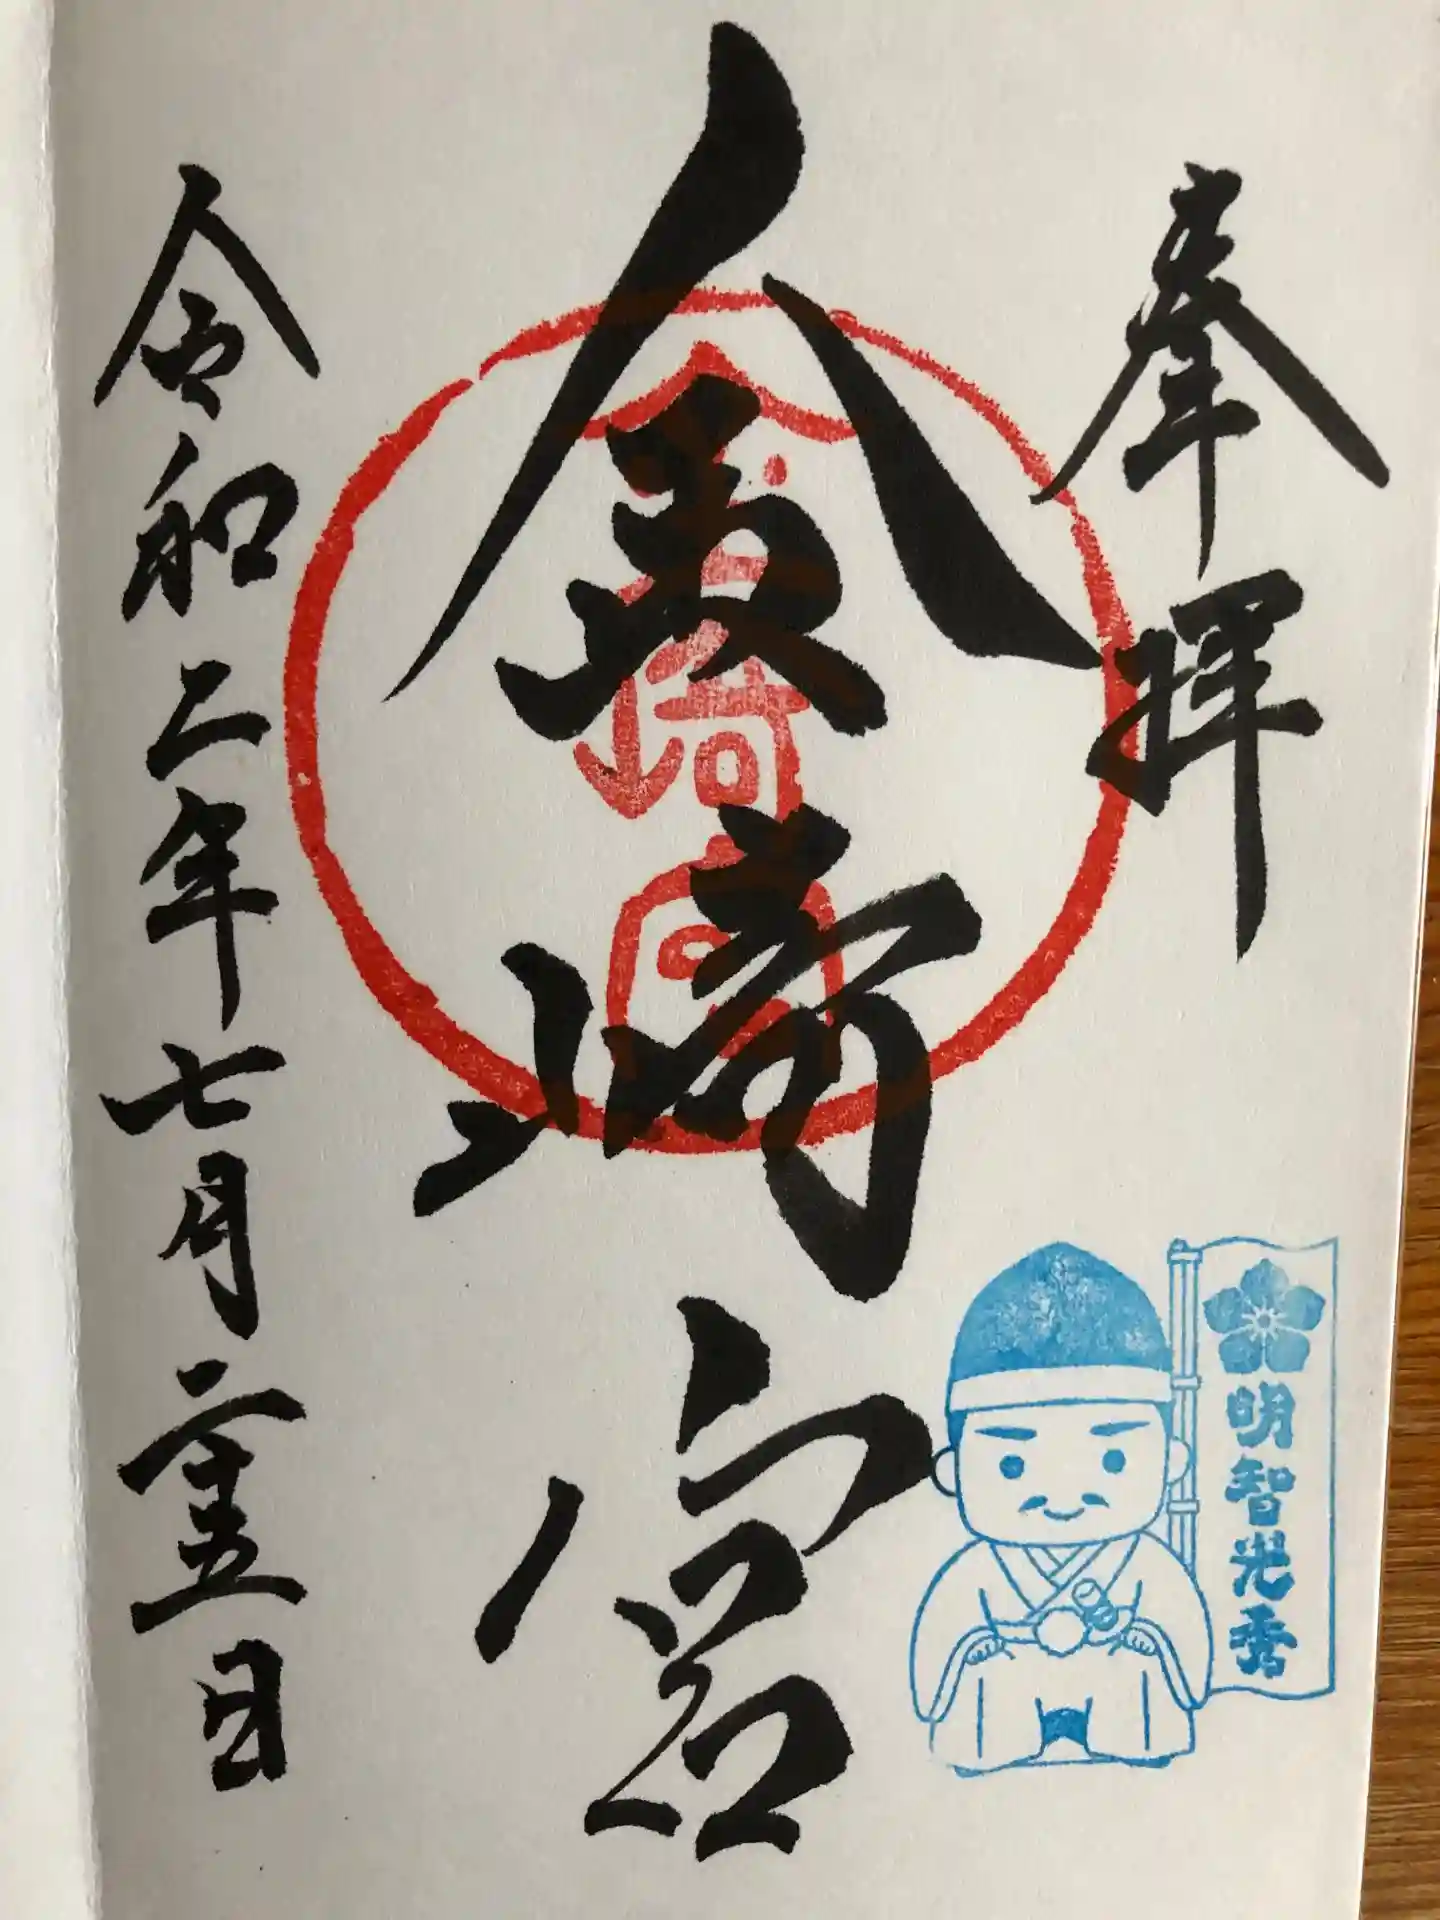 奉拝
金崎宮
金崎宮
明智光秀
令和二年七月二十五日